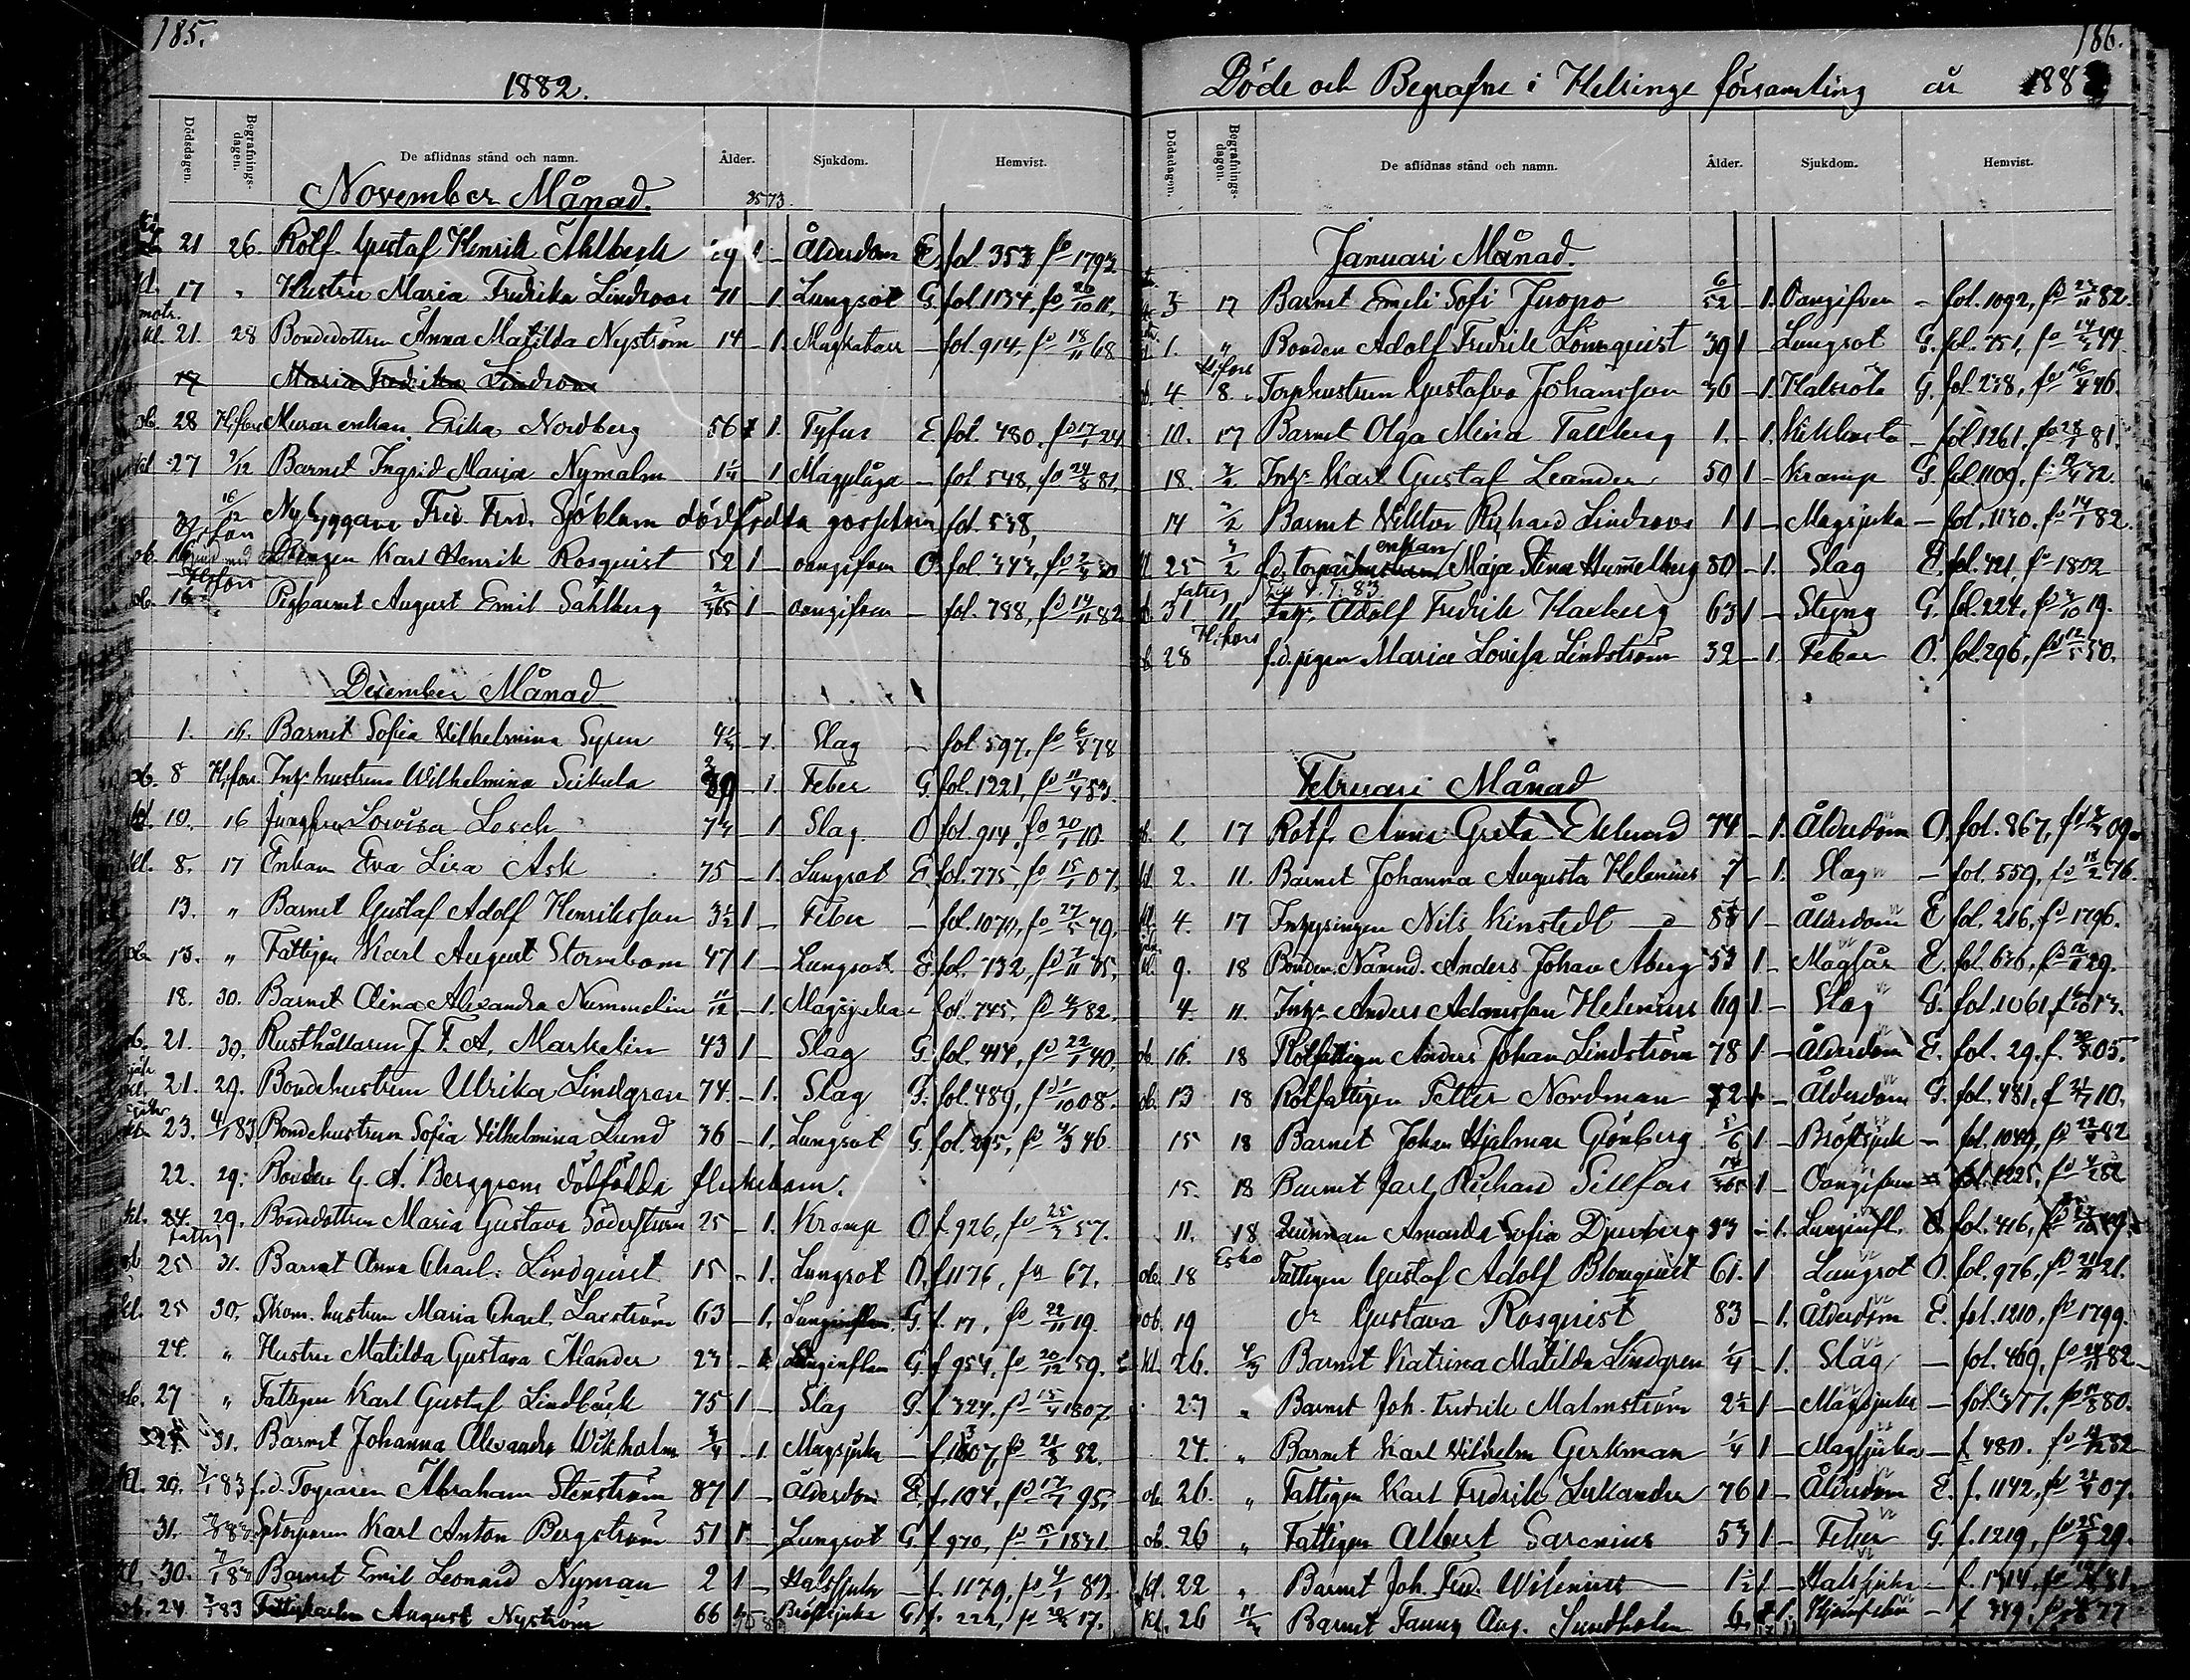 185.
1882.
Dödsdagen. Begrafnings-dagen. De aflidnas stånd och namn. Ålder. Sjukdom. Hemvist.
November Månad.
85 73
21 26. Rolf. Gustaf Henrik Ahlbeck 1 - Ålderdom E. fol. 353 fo 1792
kl. 17 " Hustru Maria Fredrika Lindroos 71 - 1. Lungsot G. fol. 1134. fo 26/10 11.
kl. 21. 28 Bondedottren Anna Matilda Nyström 14 - 1. Magkatarr - fol. 914. fo 18/11 68
17 Maria Fredrika Lindroos
ob. 28 H:fors Murar enkan Erika Nordberg 56 1. Tyfus E. fol. 480. fo 17/1 24
kl 27 2/12 Barnet Ingrid Maria Nymalm 1 1/4 - 1 Magplåga - fol. 548, fo 24/8 81.
10/12 Nybyggare Fred. Ferd. Sjöblom dödfödda gossebarn fol. 538,
ob. 16 Karl Henrik Rosquist 52 1 - oangifven O. fol 343, fo
ob. 16 H:fors Pigbarnet August Emil Sahlberg 2/365 1 - oangifven - fol. 788, fo 14/11 82
December Månad.
1. 16. Barnet Sofia Vilhelmina Syren 4 1/4 - 1. Slag - fol. 597. fo 6/8 78
ob. 8 H:fors. Inhs hustrun Wilhelmina Seikula 29 - 1. Feber G. fol. 1221, fo 11/4 53.
kl. 10. 16 Jungfru Lovisa Lesch 73 - 1 Slag O. fol. 914. fo 20/1 10.
kl. 8. 17 Enkan Eva Lisa Ask 75 - 1. Lungsot E. fol. 775, fo 15/1 07.
13. " Barnet Gustaf Adolf Henriksson 3 1/2 1 - Feber - fol. 1070, fo 27/5 79.
ob 13. " Fattigen Karl August Stormbom 47 1 - Lungsot E. fol. 732, fo 7/11 35.
18. 30. Barnet Aina Alexandra Nummelin 11/12 - 1. Magsjuka - fol. 745, fo 4/1 82.
ob. 21. 30. Rusthållaren J. F. A. Markelin 43 1 - Slag G. fol. 414, fo 22/1 40.
kl. 21. 29. Bondehustrun Ulrika Lindgren 74. - 1. Slag G. fol. 489, fo 1/10 08.
23. 4/1 83 Bondehustrun Sofia Vilhelmina Lund 36 - 1. Lungsot G. fol. 295, fo 4/3 46
22. 29. Bonden G. A. Berggrens dödfödda flickebarn.
kl. 24. 29. Bondedottren Maria Gustava Söderström 25 - 1. Kramp O. f 926, fo 25/3 57.
fattig
ob 25 31. Barnet Anna Charl. Lindquist 15 - 1. Lungsot O. f 1176, fo 67.
kl. 25 30. Skom. hustrun Maria Charl. Laxström 63 - 1. Lunginflam. G. f. 17, fo 22/11 19.
24. " Hustru Matilda Gustava Ålander 23 - 1. Lunginflam G. f 954, fo 20/12 59.
ob. 27 " Fattigen Karl Gustaf Lindbäck 75 1 - Slag G. f 324, fo 15/4 1807
27 31. Barnet Johanna Alexandra Wikholm 3/4 - 1 Magsjuka - f 1307, fo 21/8 82.
kl. 29. 7/1 83 f.d. Torparen Abraham Stenström 87 1 - Ålderdom E. f. 104, fo 17/7 95,
31. Storparen Karl Anton Bergström 51 1. Lungsot G. f 970, fo 15/1 1831.
kl. 30. 7/1 83 Barnet Emil Leonard Nyman 2 1 - Halssjuka - f. 1179, fo 4/1 81.
ob. 24 7/1 83 August Nyström 66 Bröstsjuka G. f. 222, fo 28/5 17.
186.
Döde och Begrafne i Helsinge församling år 1883
Dödsdagen. Begrafnings-dagen. De aflidnas stånd och namn. Ålder. Sjukdom. Hemvist.
Januari Månad.
3 17 Barnet Emeli Sofi Juopo 6/52 - 1. Oangifven - fol. 1092, fo 23/11 82.
1. " Bonden Adolf Fredrik Lönnquist 39 1 - Lungsot G. fol. 751, fo 14/3 44.
H:fors
ob. 4 8 Torphustrun Gustafva Johansson 36 - 1. Halsröta G. fol. 238, fo 16/4 46.
10. 17 Barnet Olga Mina Tallberg 1. - 1. Kikhosta - fol. 1261, fo 28/1 81.
18. 3/2 Inhs Karl Gustaf Leander 50 1 - Kramp G. fol. 1109. fo 32.
14 3/2 Barnet Viktor Richard Lindroos 1 1 - Magsjuka - fol. 1130. fo 14/1 82.
kl. 25 3/2 f.d. torparenkan Maja Stina Hummelberg 80 - 1. Slag E. fol. 421, fo 1802
fattig
ob. 31 11 Inhs. Adolf Fredrik Hacberg 63 1 - Styng G. fol. 224. fo 3/10 19.
H:fors
ob. 28 f.d. pigan Maria Lovisa Lindström 32 - 1. Feber O. fol. 296, fo 12/5 50.
Februari Månad
ob. 1 17 Rotf. Anna Greta Eklund 74 - 1. Ålderdom O. fol. 867, fo 09.
kl. 2. 11. Barnet Johanna Augusta Helenius 7 - 1. Slag - fol. 559, fo 18/2 76.
4. 17 Inhysingen Nils Kinstedt 1 - Ålderdom E fol. 216, fo 1796.
kl. 9. 18 Bonden Nämnd. Anders Johan Åberg 53 1 - Magsår E. fol. 636, fo 29.
4. 11. Inhs Anders Adamsson Helenius 69 1 - Slag G. fol. 1061 fo 13.
ob. 16. 18 Rotfattigen Anders Johan Lindström 78 1 - Ålderdom E. fol. 29. f. 30/8 05.
ob. 13 18 Rotfattigen Petter Nordman 72 1 - Ålderdom G. fol. 481, f 21/7 10.
15 18 Barnet Johan Hjalmar Grönberg 5/6 1 - Bröstsjuk - fol. 1049, fo 22/4 82
15. 18 Barnet Jarl Richard Sillfors 14/365 1 - Oangifven fol. 1225, fo
11. 18 Qvinnan Amanda Sofia Djurberg 33 - 1. Lunginfl. O. fol. 416,
Esbo
ob. 18 Fattigen Gustaf Adolf Blomquist 61. 1 Lungsot O. fol. 976, fo 21/11 21.
ob. 19 do Gustava Rosquist 83 - 1. Ålderdom E. fol. 1210, fo 1799.
kl. 26. 4/3 Barnet Katrina Matilda Lindgren 1/4 - 1. Slag - fol. 469, fo 24/11 82
27 " Barnet Joh. Fredrik Malmström 2 1/2 1 - Magsjuka - fol. 377. fo 80.
24. " Barnet Karl Vilhelm Gerkman 1/4 1 - Magsjuka - f 480. fo 82
ob. 26. " Fattigen Karl Fredrik Lukander 76 1 - Ålderdom E. f. 1142, fo 07.
ob. 26 " Fattigen Albert Sarenius 53 1 - Feber G. f. 1219, fo 25/9 29.
kl. 22 " Barnet Joh. Ferd. Wilenius 1 1/2 1 - Halssjuka - f. 1314, fo 81
kl. 26 11/3 Barnet Fanny Aug. Sundholm 6. - f 349. fo 77